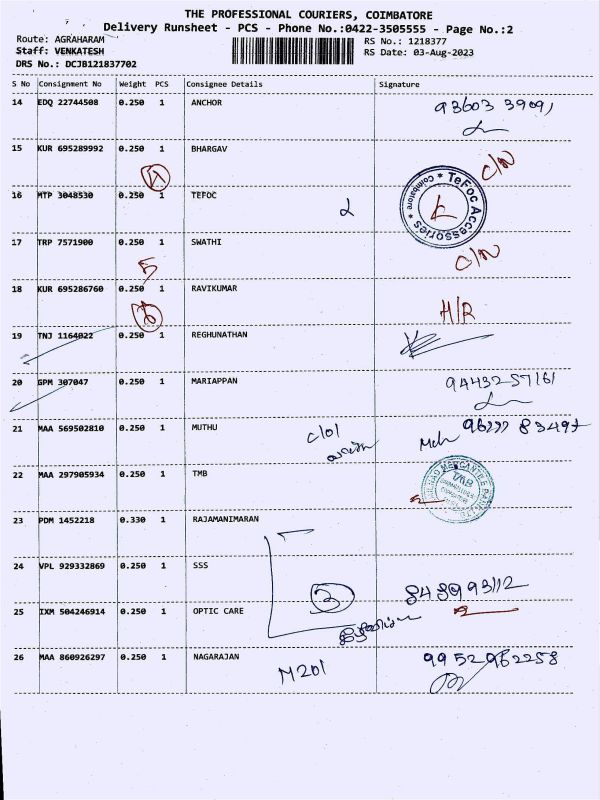 THE PROFESSIONAL COURIERS, COIMBATORE
Delivery Runsheet - PCS - Phone No.:0422-3505555 - Page No.:2
Route: AGRAHARAM
RS No.: 1218377
Staff: VENKATESH
RS Date: 03-Aug-2023
DRS No.: DCJB121837702
S No Consignment No Weight PCS Consignee Details Signature
14 EDQ 22744508 0.250 1 ANCHOR
15 KUR 695289992 0.250 1 BHARGAV C/N
16 MTP 3048530 0.250 1 TEFOC
TeFoc Accessories * Coimbatore *
17 TRP 7571900 0.250 1 SWATHI C/N
5
18 KUR 695286760 0.250 1 RAVIKUMAR H/R
19 TNJ 1164022 0.250 1 REGHUNATHAN
20 GPM 307047 0.250 1 MARIAPPAN 94432 57161
21 MAA 569502810 0.250 1 MUTHU
22 MAA 297905934 0.250 1 TMB
TMB
23 PDM 1452218 0.330 1 RAJAMANIMARAN
24 VPL 929332869 0.250 1 SSS
3
25 IXM 504246914 0.250 1 OPTIC CARE
26 MAA 860926297 0.250 1 NAGARAJAN M201 9952962258